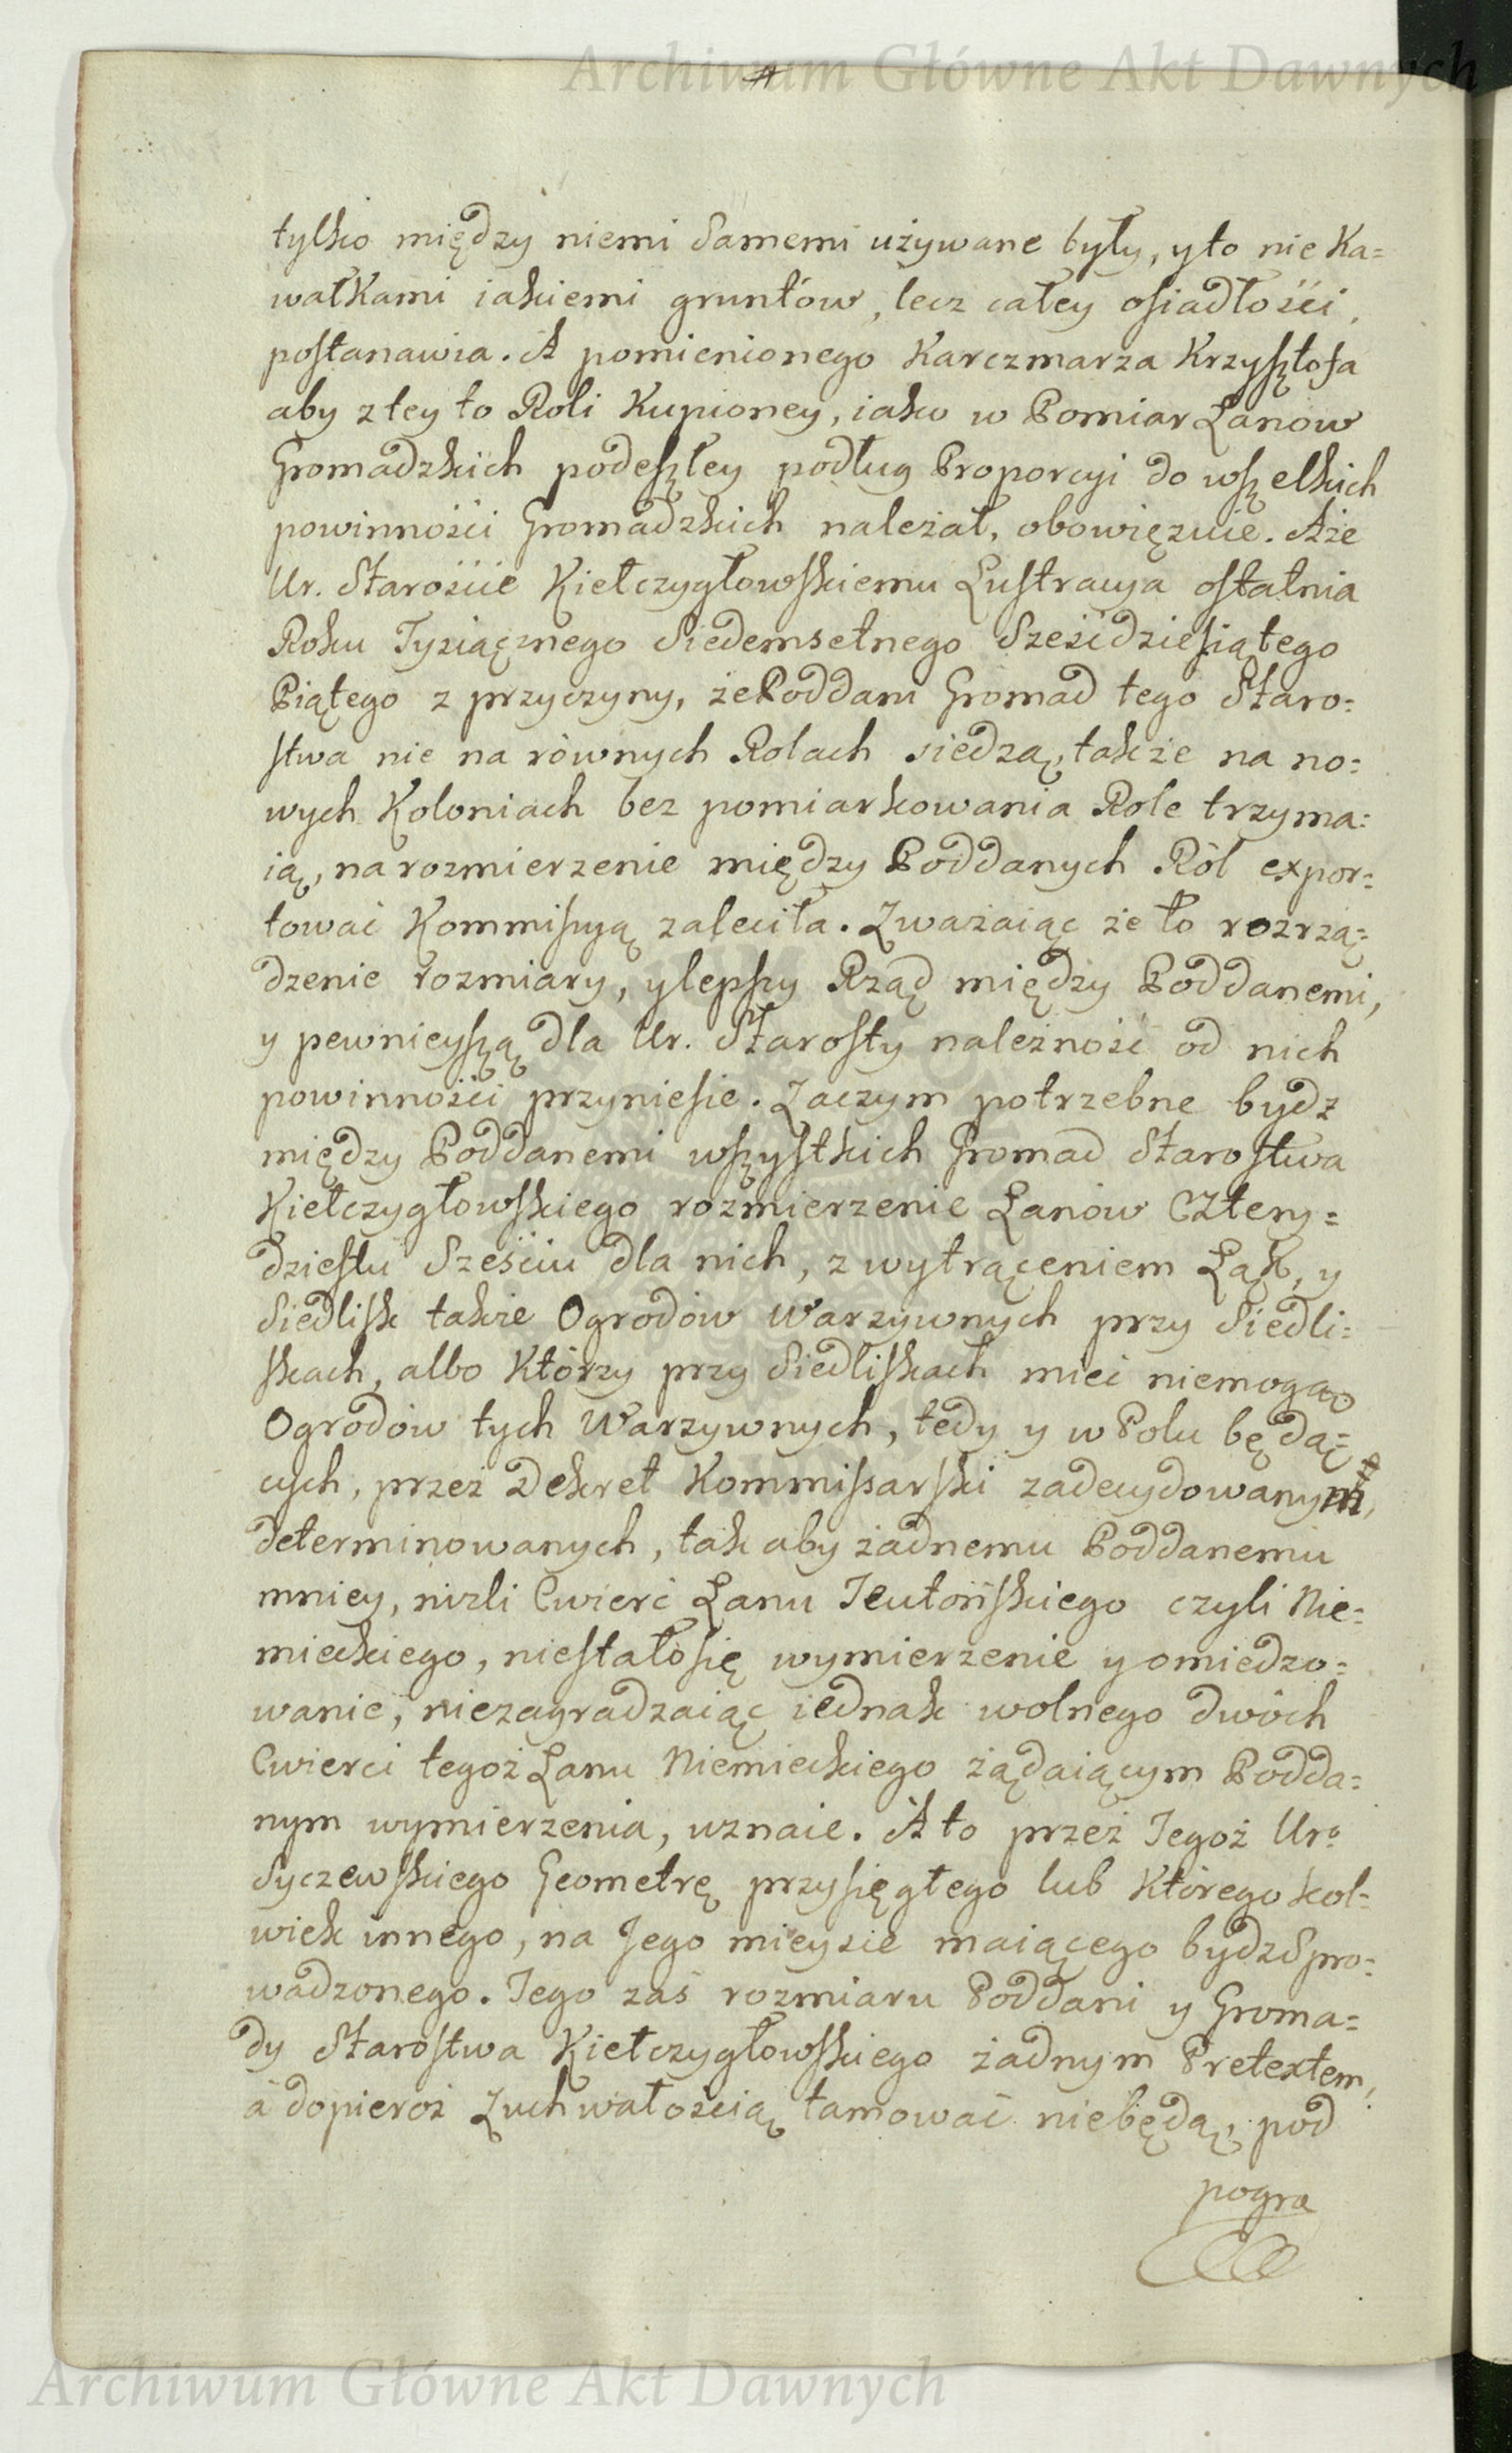 Archiwum Główne Akt Dawnych
tylko między niemi Samemi używane były, y to nie Ka=
wałkami iakiemi gruntów, lecz całey osiadłości,
postanawia. A pomienionego Karczmarza Krzysztofa
aby z tey to Roli Kupioney, iako w Pomiar Łanow
Gromadzkich podeszłey podług Proporcyi do wszelkich
powinności Gromadzkich należał, obowięzuie. Aże
Ur. Staroście Kiełczygłowskiemu Lustracya ostatnia
Roku Tysiącznego Siedemsetnego Sześćdziesiątego
Piątego z przyczyny, że Poddani Gromad tego Staro=
stwa nie na równych Rolach siedzą, także na no=
wych Koloniach bez pomiarkowania Role trzyma=
ią, na rozmierzenie między Poddanych Ról expor=
tować Kommissyą zaleciła. Zważaiąc że to rozrzą=
dzenie rozmiary, y lepszy Rząd między Poddanemi,
y pewnieyszą dla Ur. Starosty należność od nich
powinności przyniesie. Zaczym potrzebne bydz
między Poddanemi wszystkich Gromad Starostwa
Kiełczygłowskiego rozmierzenie Łanów Cztery=
dziestu Sześciu dla nich, z wytrąceniem Łąk, y
Siedlisk także Ogrodów Warzywnych przy Siedli=
skach, albo Którzy przy Siedliskach mieć niemogą
Ogrodów tych Warzywnych, tedy y w Polu będą=
cych, przez Dekret Kommissarski zadecydowanym,
determinowanych, tak aby żadnemu Poddanemu
mniey, niżli Cwierć Łanu Teutońskiego czyli Nie=
mieckiego, niestało się wymierzenie y omiedzo=
wanie, niezagradzaiąc iednak wolnego dwóch
Cwierci tegoż Łanu Niemieckiego żądaiącym Podda=
nym wymierzenia, uznaie. A to przez Tegoż Urº
Syczewskiego Geometrę przysięgłego lub Którego kol=
wiek innego, na Jego mieysce maiącego bydz Spro=
wadzonego. Tego zaś rozmiaru Poddani y Groma=
dy Starostwa Kiełczygłowskiego żadnym Pretextem,
a dopieroż Zuchwałością tamować niebędą, pod
pogra
Archiwum Główne Akt Dawnych